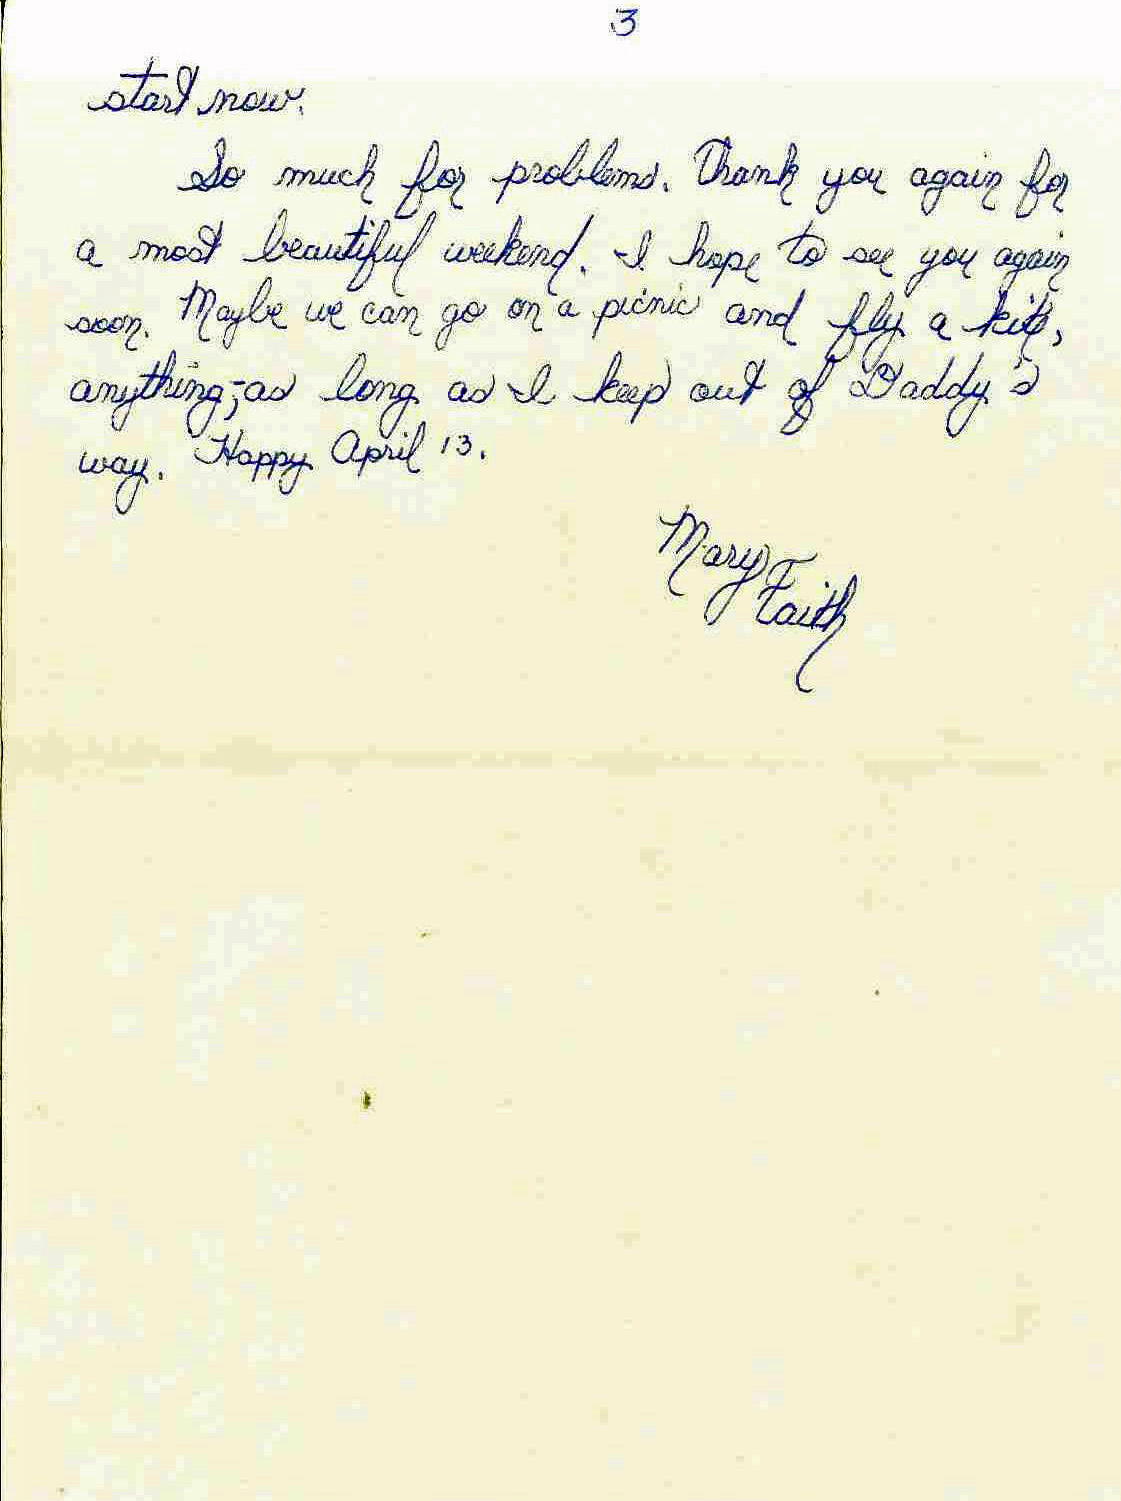 3
start now.
So much for problems. Thank you again for
a most beautiful weekend. I hope to see you again
soon. Maybe we can go on a picnic and fly a kite,
anything,-as long as I keep out of Daddy's
way. Happy April 13.
Mary
Faith